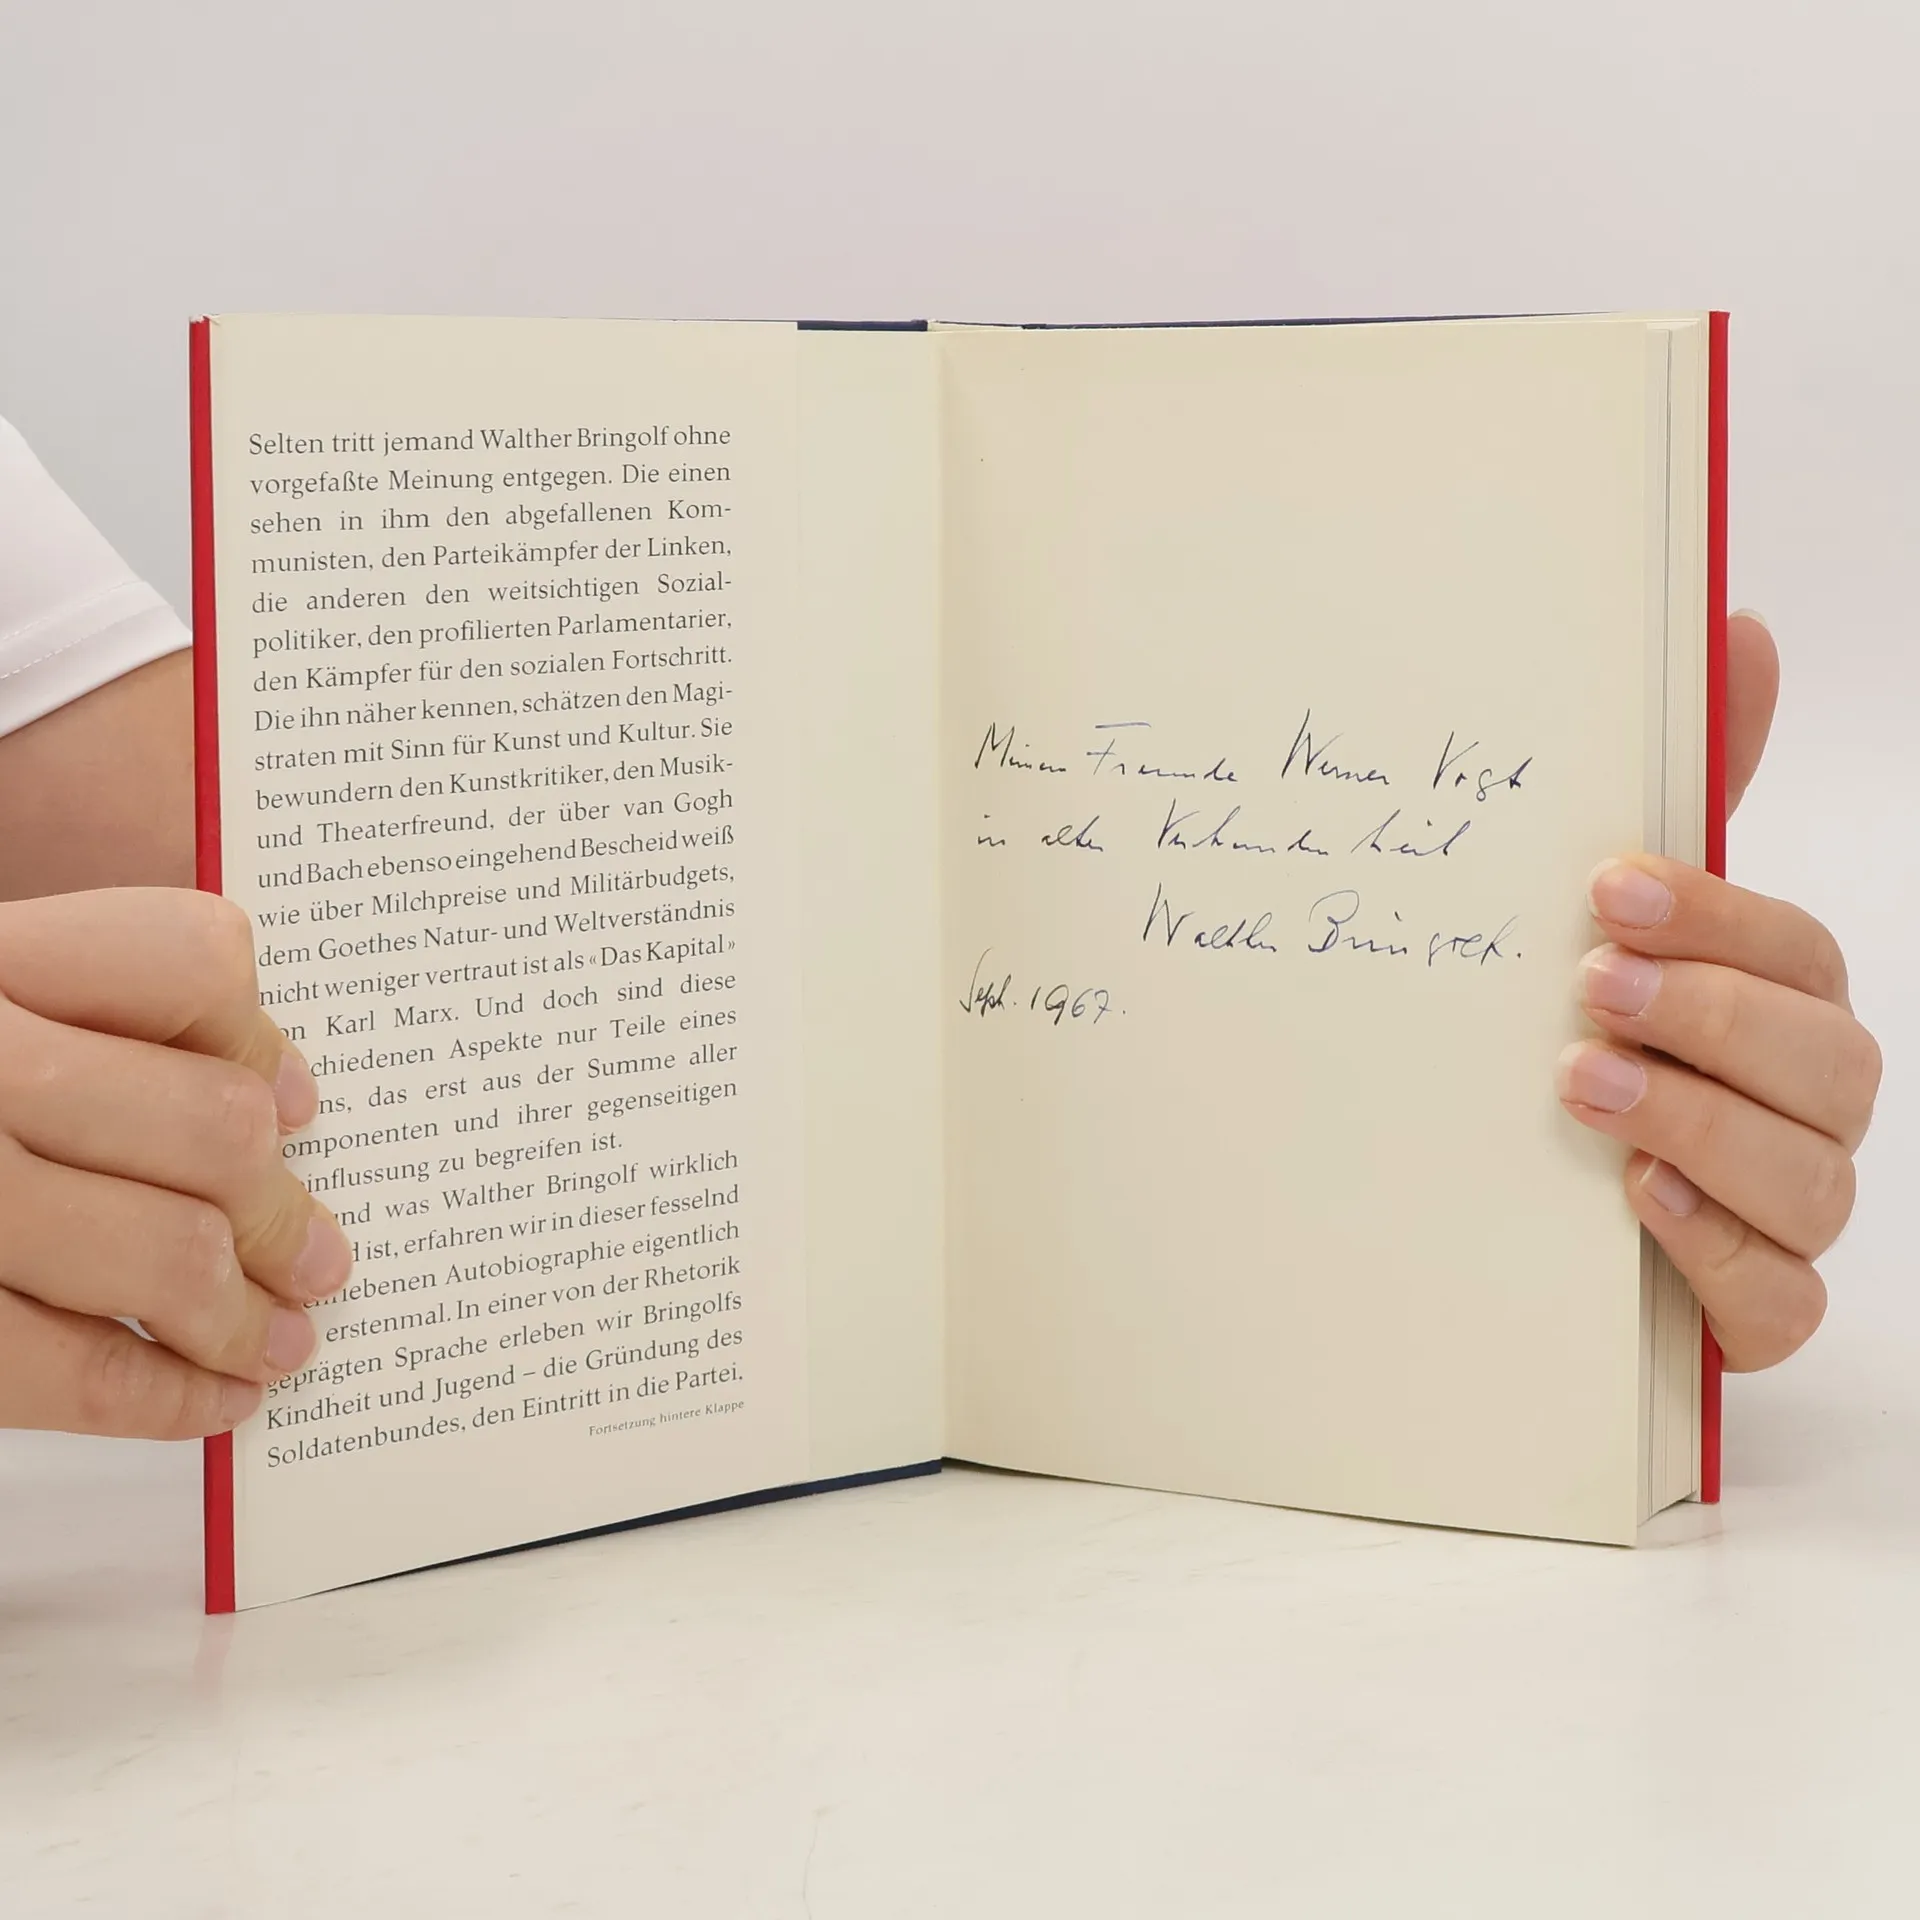 Selten tritt jemand Walther Bringolf ohne
vorgefaßte Meinung entgegen. Die einen
sehen in ihm den abgefallenen Kom-
munisten, den Parteikämpfer der Linken,
die anderen den weitsichtigen Sozial-
politiker, den profilierten Parlamentarier,
den Kämpfer für den sozialen Fortschritt.
Die ihn näher kennen, schätzen den Magi-
straten mit Sinn für Kunst und Kultur. Sie
bewundern den Kunstkritiker, den Musik-
und Theaterfreund, der über van Gogh
und Bach ebenso eingehend Bescheid weiß
wie über Milchpreise und Militärbudgets,
dem Goethes Natur- und Weltverständnis
nicht weniger vertraut ist als «Das Kapital»
on Karl Marx. Und doch sind diese
chiedenen Aspekte nur Teile eines
ns, das erst aus der Summe aller
omponenten und ihrer gegenseitigen
influssung zu begreifen ist.
und was Walther Bringolf wirklich
d ist, erfahren wir in dieser fesselnd
riebenen Autobiographie eigentlich
erstenmal. In einer von der Rhetorik
geprägten Sprache erleben wir Bringolfs
Kindheit und Jugend – die Gründung des
Soldatenbundes, den Eintritt in die Partei.
Fortsetzung hintere Klappe
Meinem Freunde Werner Vogt
in alter Verbundenheit
Walther Bringolf.
Sept. 1967.